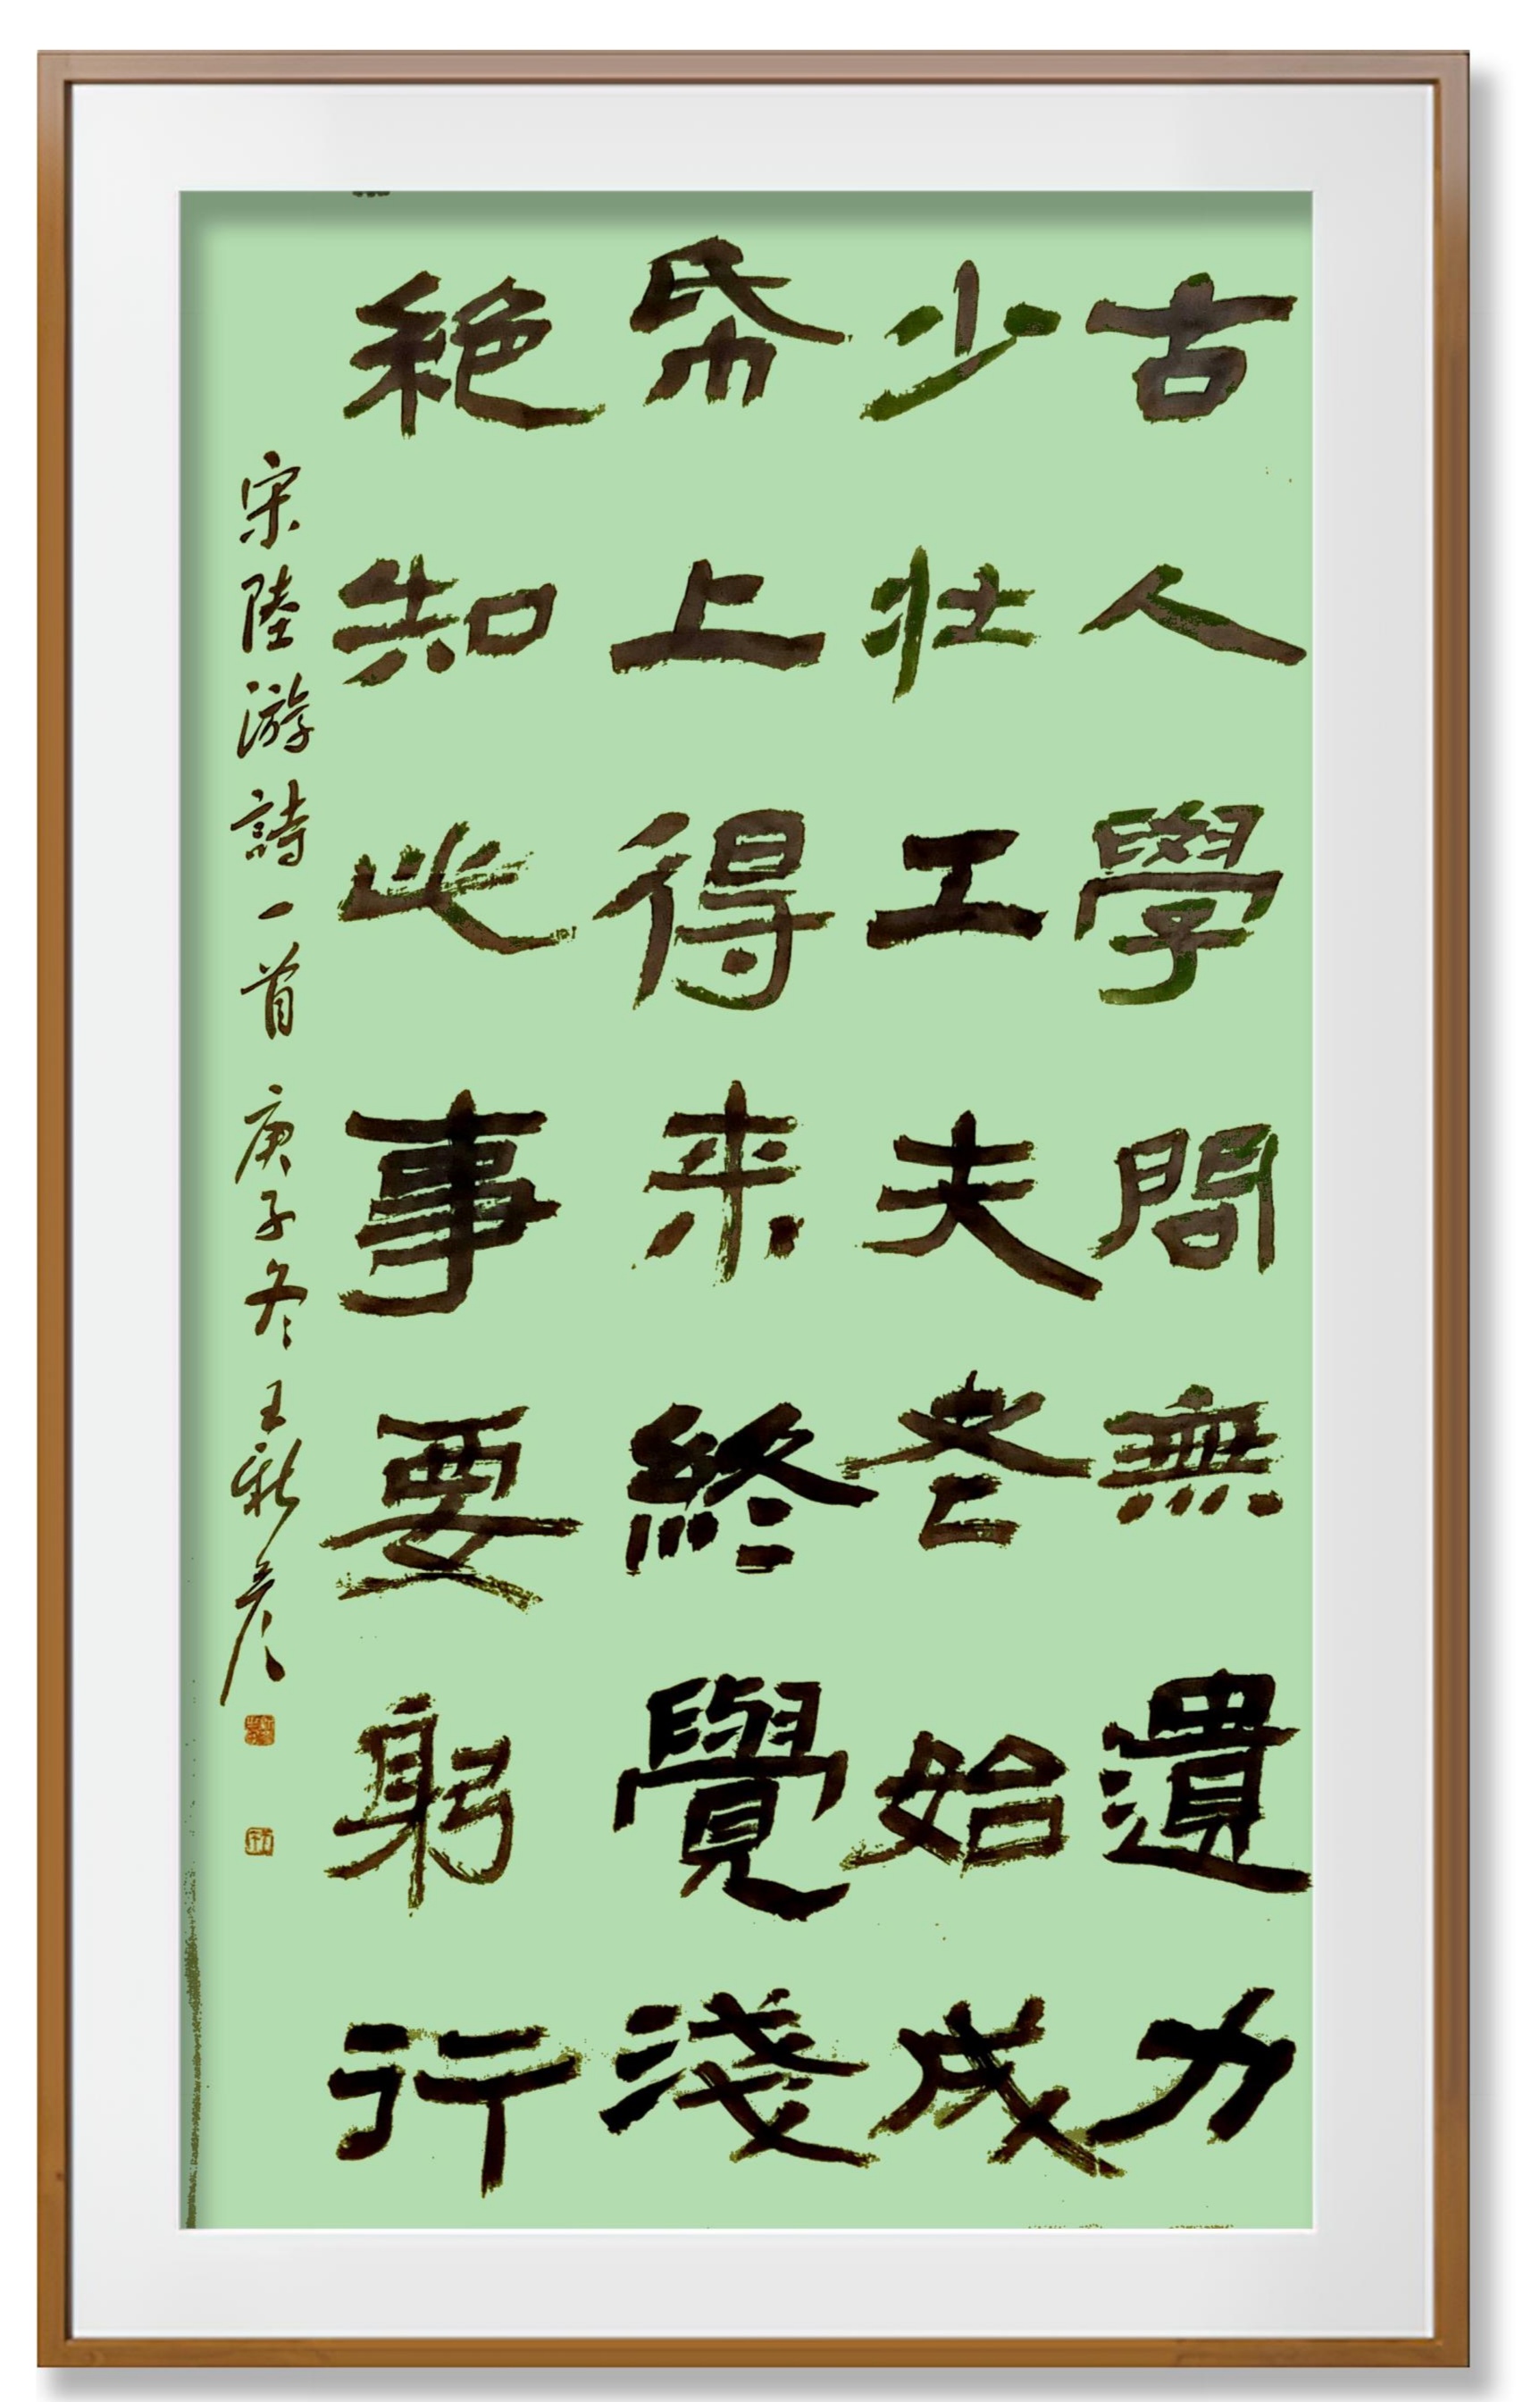 古人學問無遺力
少壮工夫老始成
帋上得来終覺淺
絶知此事要躬行
宋陸游詩一首 庚子冬 王新彦